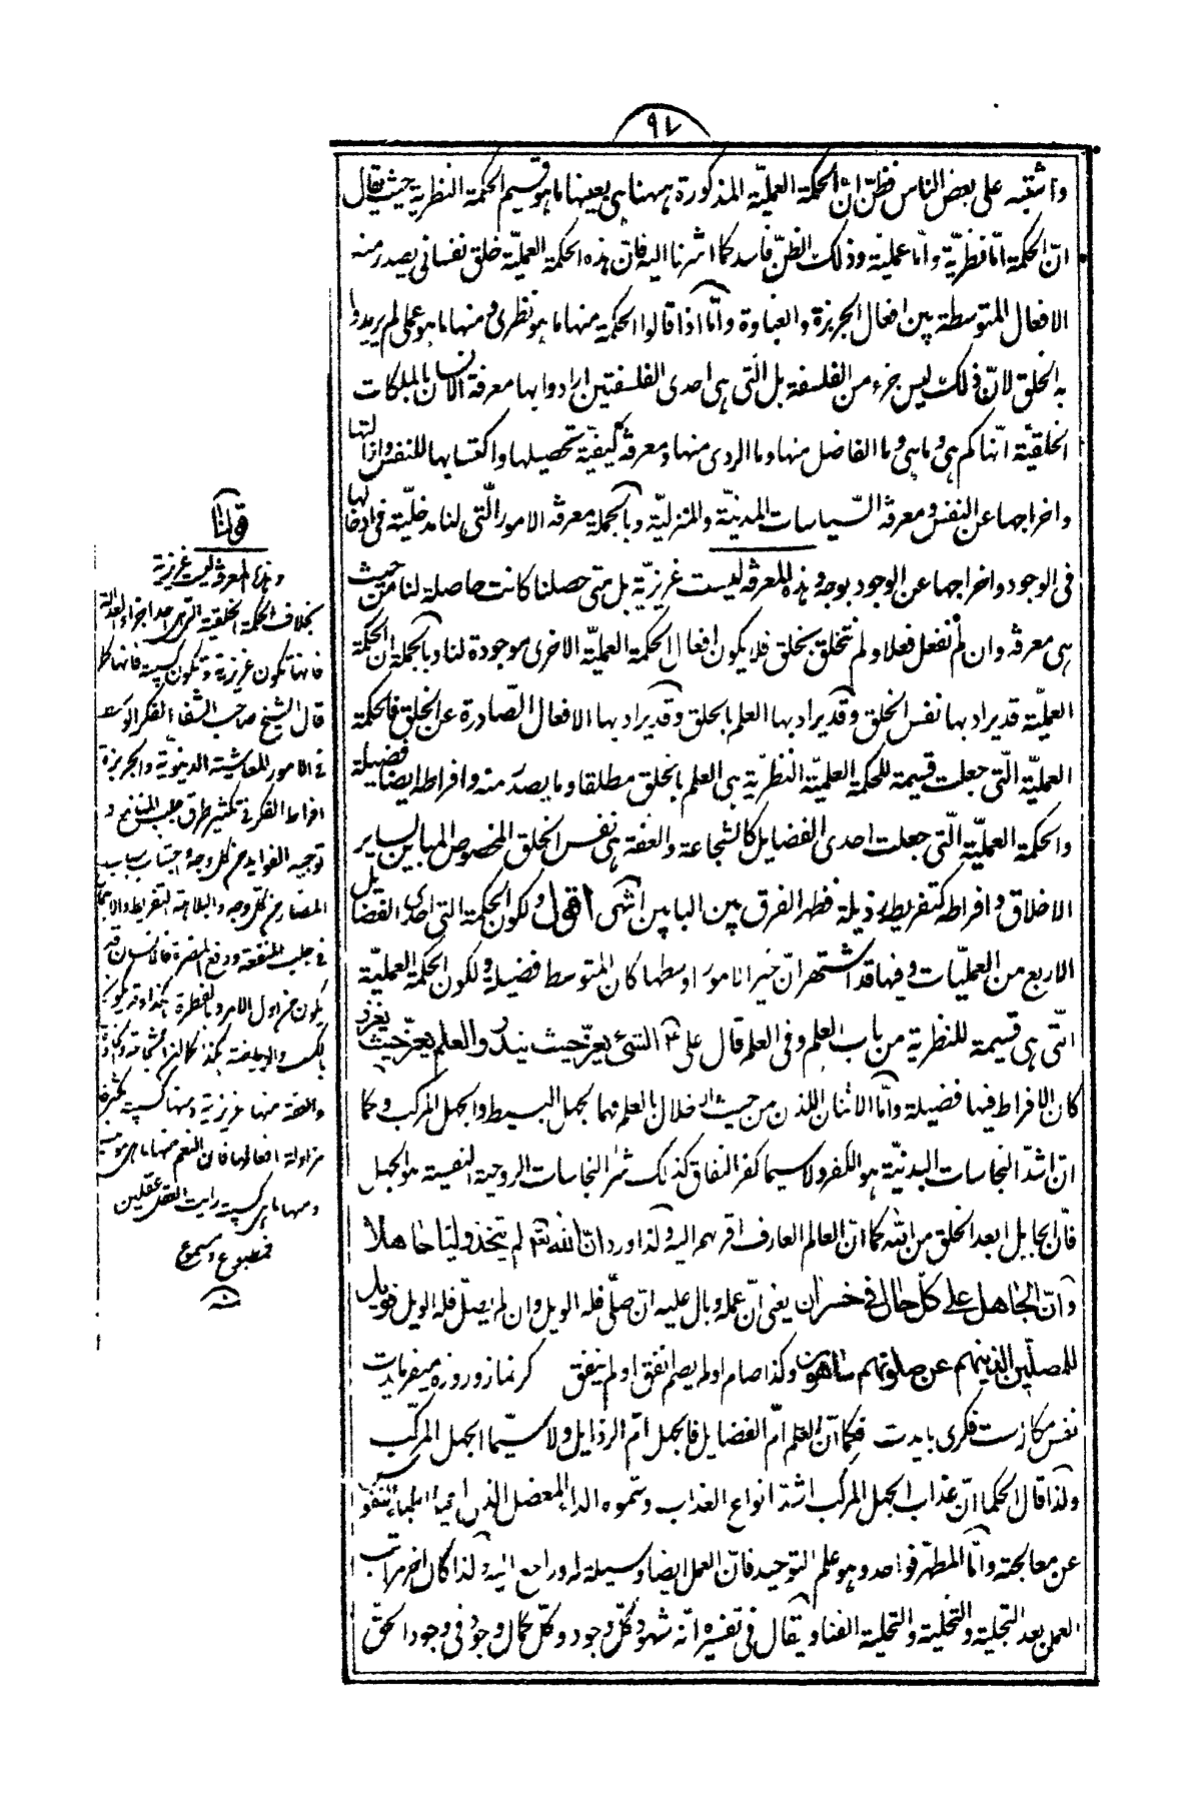 ٩٧
واشتبه على بعض الناس فظنّ انّ الحكمة العمليّة المذكورة ههنا هى بعينها ما هو قسيم الحكمة النظرية حيث يقال
انّ الحكمة امّا نظريّة وامّا عمليّة وذلك الظنّ فاسد كما اشرنا اليه فانّ هذه الحكمة العمليّة خلق نفسانى يصدر منه
الافعال المتوسطة بين افعال الجربزة والغباوة وامّا اذا قالوا الحكمة منها ما هو نظرى ومنها ما هو عملى لم يريدوا
به الخلق لانّ ذلك ليس جزء من الفلسفة بل الّتى هى احدى الفلسفتين ارادوا بها معرفة الانسان بالملكات
الخلقيّة انّها كم هى وما هى وما الفاضل منها وما الردى منها ومعرفة كيفيّة تحصيلها واكتسابها للنفس وازالتها
واخراجها عن النفس ومعرفة السّياسات المدنيّة والمنزليّة وبالجملة معرفة الامور الّتى لنا مدخليّة فى ادخالها
فى الوجود واخراجها عن الوجود بوجه وهذه المعرفة ليست غريزيّة بل متى حصلنا كانت حاصلة لنا من حيث
هى معرفة وان لم نفعل فعلا ولم نتخلق بخلق فلا يكون افعال الحكمة العمليّة الاخرى موجودة لنا وبالجملة انّ الحكمة
العمليّة قد يراد بها نفس الخلق وقد يراد بها العلم بالخلق وقد يراد بها الافعال الصّادرة عن الخلق فالحكمة
العمليّة الّتى جعلت قسيمة للحكمة العلميّة النظريّة هى العلم بالخلق مطلقا وما يصدر منه وافراطه ايضا فضيلة
والحكمة العمليّة الّتى جعلت احدى الفضايل كالشجاعة والعفة هى نفس الخلق المخصوص المباين لساير
الاخلاق وافراطه كتفريطه رذيلة فظهر الفرق بين البابين انتهى اقول ولكون الحكمة التى احدى الفضايل
الاربع من العمليّات وفيها قد اشتهر انّ خير الامور اوسطها كان المتوسط فضيلة ولكون الحكمة العمليّة
الّتى هى قسيمة للنظرية من باب العلم وفى العلم قال على ع الشىء يعزّ حيث يندر والعلم يعزّ حيث يغزر
كان الافراط فيها فضيلة وامّا الاثنان اللذان من حيث الاخلال بالعلم فهما الجهل البسيط والجهل المركب وكما
انّ اشدّ النجاسات البدنيّة هو الكفر ولا سيما كفر النفاق كذلك شرّ النجاسات الروحية النفسية هو الجهل
فانّ الجاهل ابعد الخلق من الله كما انّ العالم العارف اقربهم اليه ولذا ورد انّ الله تعه لم يتخذ وليّا جاهلا
وانّ الجاهل على كلّ حال فى خسران يعنى انّ عمله وبال عليه ان صلّى فله الويل وان لم يصلّ فله الويل فويل
للمصلّين الذين هم عن صلوتهم ساهون وكذا صام او لم يصم انفق او لم ينفق كر نماز وروزه ميفرمايدت
نفس مكارست فكرى بايدت فكما انّ العلم امّ الفضايل فالجهل امّ الرذايل ولا سيّما الجهل المركّب
ولذا قال الحكما انّ عذاب الجهل المركب اشدّ انواع العذاب وسموه الداء المعضل الذى اعيى اطباء النفوس
عن معالجته وامّا المطهّر فواحد وهو علم التوحيد فانّ العمل ايضا وسيلة له وراجع اليه ولذا كان اخر مراتب
العمل بعد التجلية والتخلية والتحلية الفنا ويقال فى تفسيره انّه شهود كلّ وجود وكلّ كمال وجود فى وجود الحقّ
قولنا
وهذه المعرفة ليست غريزية
بخلاف الحكمة الخلقية التى هى احد اجزاء العدالة
فانها تكون غريزية وتكون كسبية فانها كما
قال الشيخ صاحب الشفا الفكر الوسط
فى الامور المعاشية الدنيوية والجربزة
افراط الفكر فى تكثير طرق جلب المنافع و
توجيه الفوايد من كل وجه واجتناب اسباب
المضار من كل وجه والبلاهة التفريط والاهمال
فى جلب المنفعة ودفع المضرة فالانسان قد
يكون من اول الامر وبالفطرة هكذا وقد يكون
بالكسب والرياضة هكذا كالشجاعة
والعفة منها غريزية ومنها كسبية بكثرة
مزاولة افعالها فان النعم منها ما هى موهبية
ومنها ما هى كسبية رايت العقل عقلين
فمطبوع ومسموع
منه